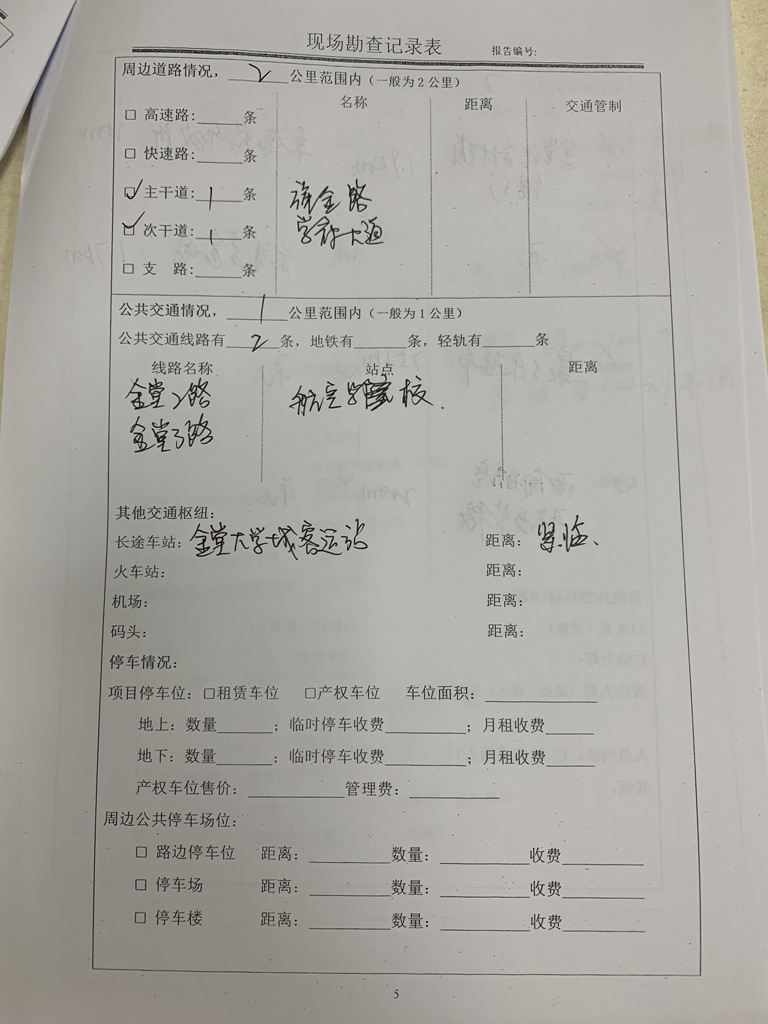 现场勘查记录表 报告编号:
周边道路情况，2公里范围内（一般为2公里）
名称 距离 交通管制
□ 高速路:______条
□ 快速路:______条
☑ 主干道:1条 金路
☑ 次干道:1条 学府大道
□ 支 路:______条
公共交通情况，1公里范围内（一般为1公里）
公共交通线路有2条，地铁有______条，轻轨有______条
线路名称 站点 距离
金堂2路 航空学院校
金堂3路
其他交通枢纽:
长途车站: 金堂大学城客运站 距离: 紧临、
火车站: 距离:
机场: 距离:
码头: 距离:
停车情况:
项目停车位: □租赁车位 □产权车位 车位面积:____________
地上: 数量______；临时停车收费________；月租收费______
地下: 数量______；临时停车收费________；月租收费______
产权车位售价:__________管理费:__________
周边公共停车场位:
□ 路边停车位 距离:________数量:________收费________
□ 停车场 距离:________数量:________收费________
□ 停车楼 距离:________数量:________收费________
5